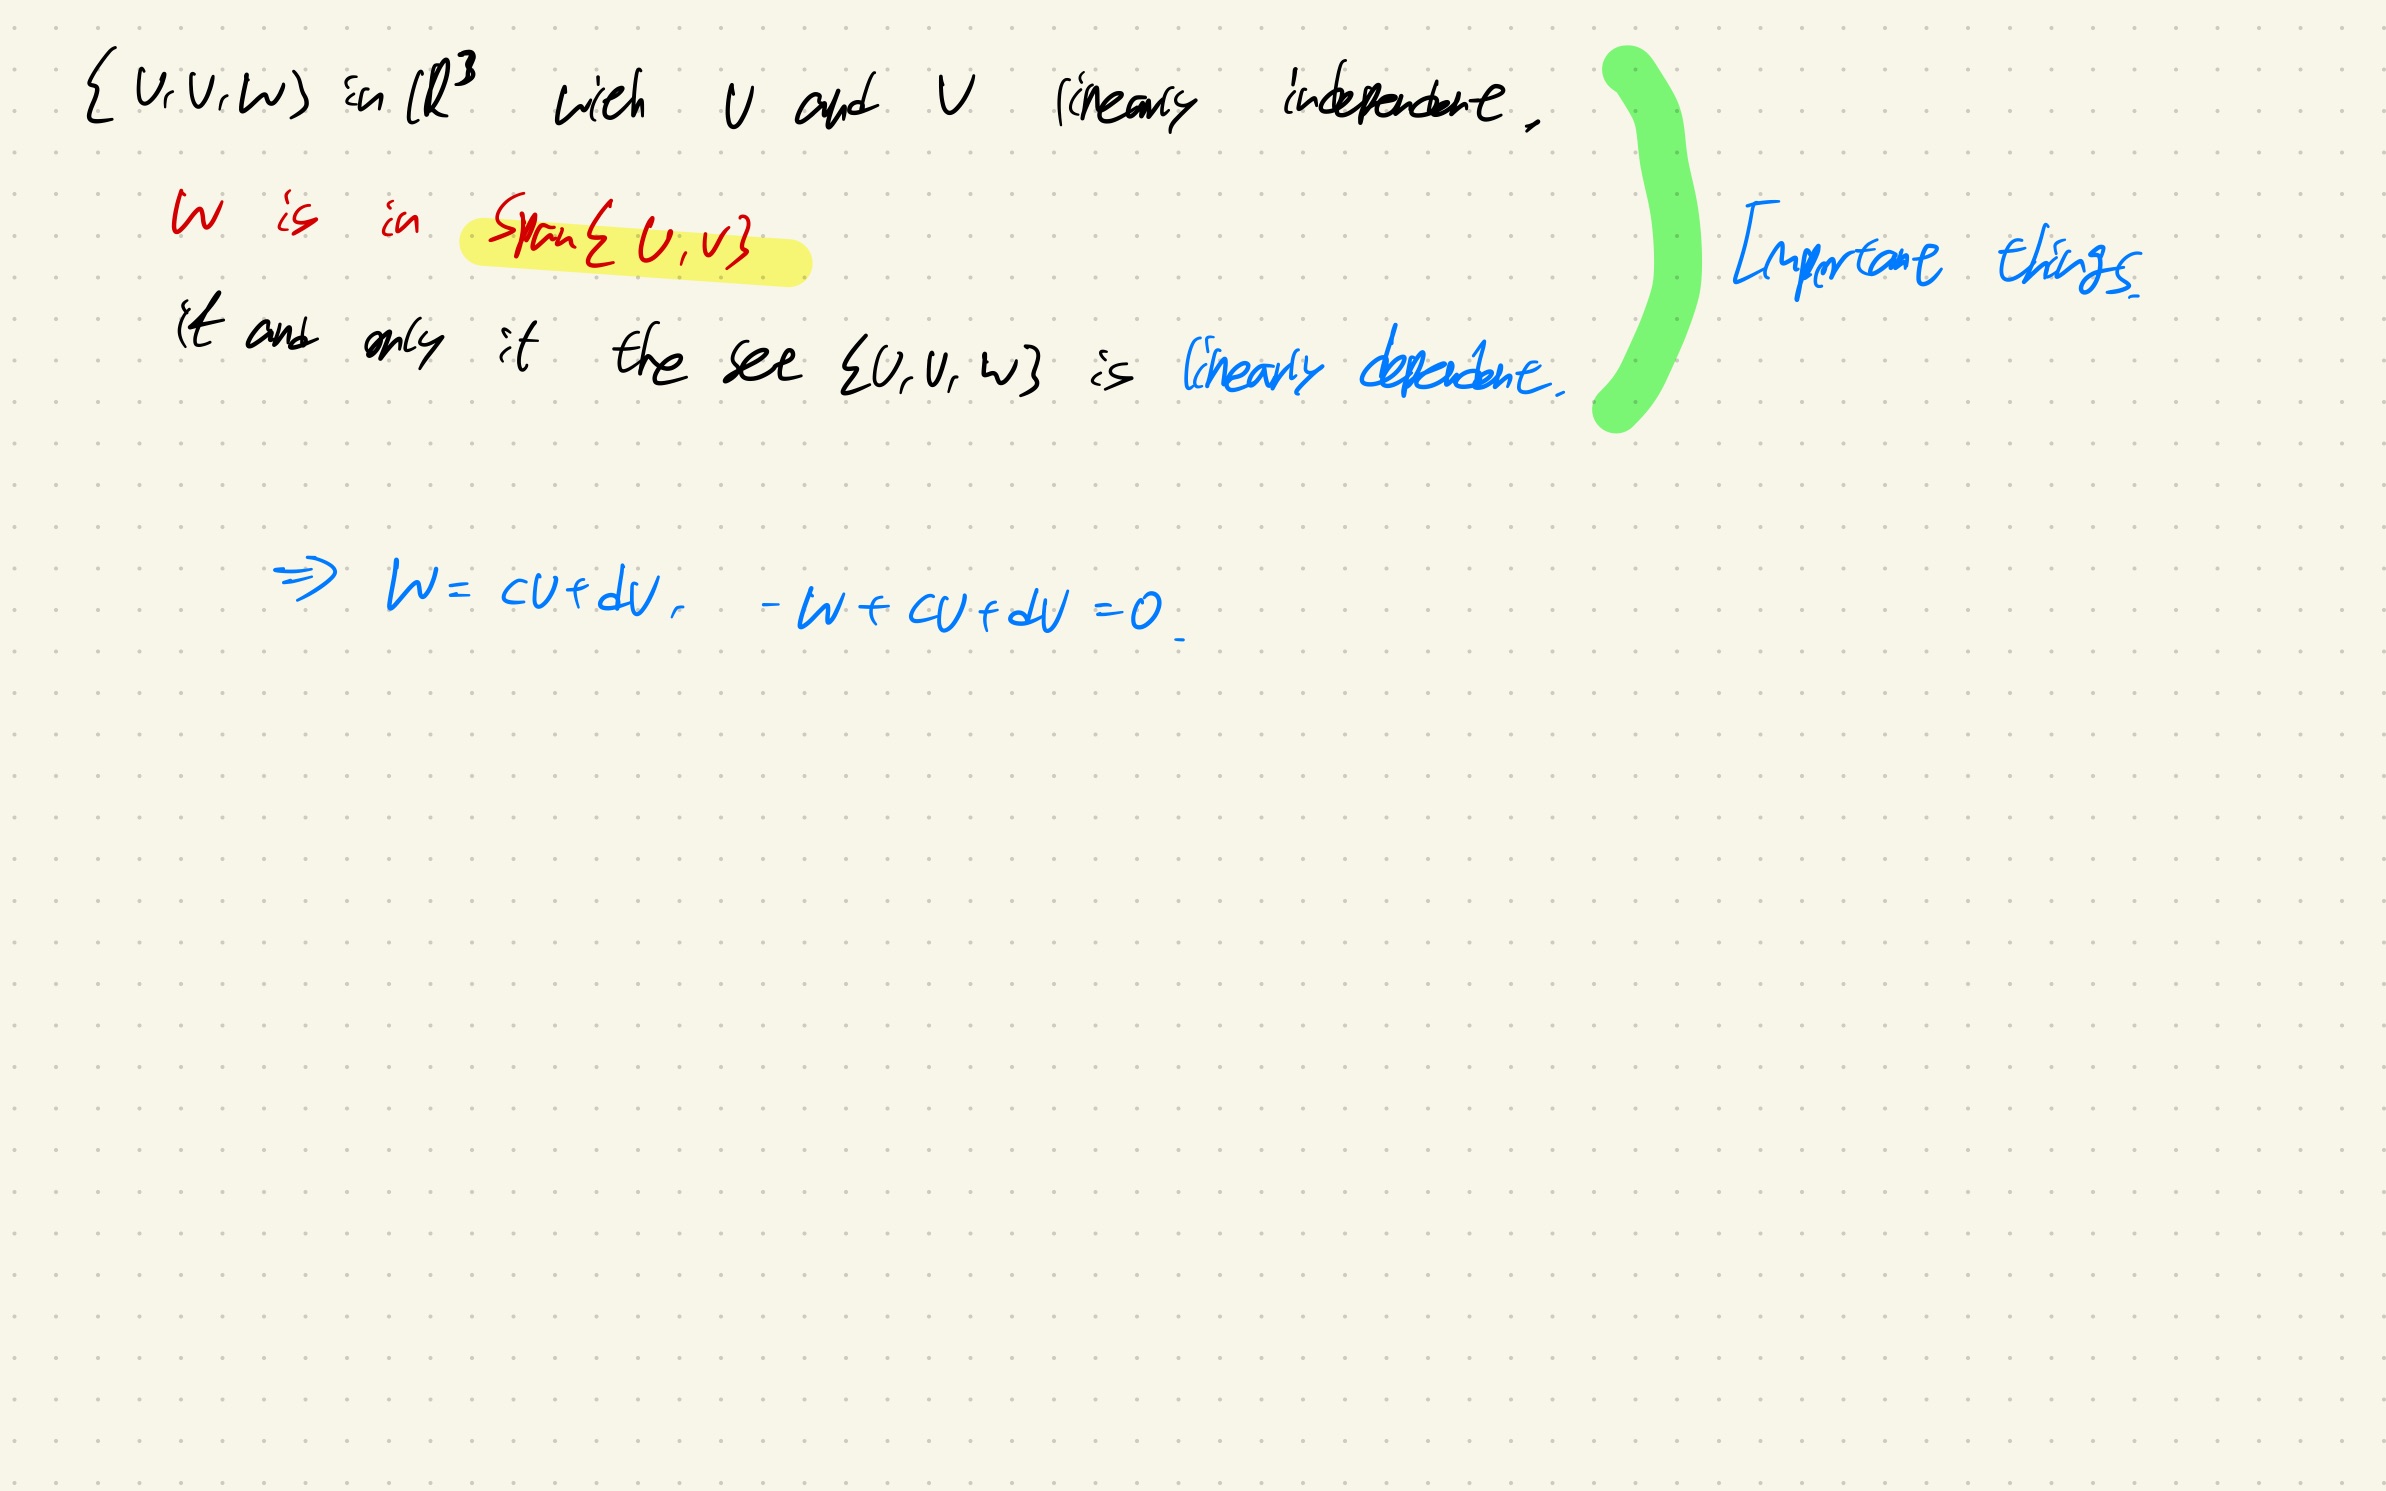 {u, v, w} in ℝ³ with u and v linearly independent.
w is in Span{u, v}
if and only if the set {u, v, w} is linearly dependent.
Important things.
⇒ w = cu + dv, -w + cu + dv = 0.